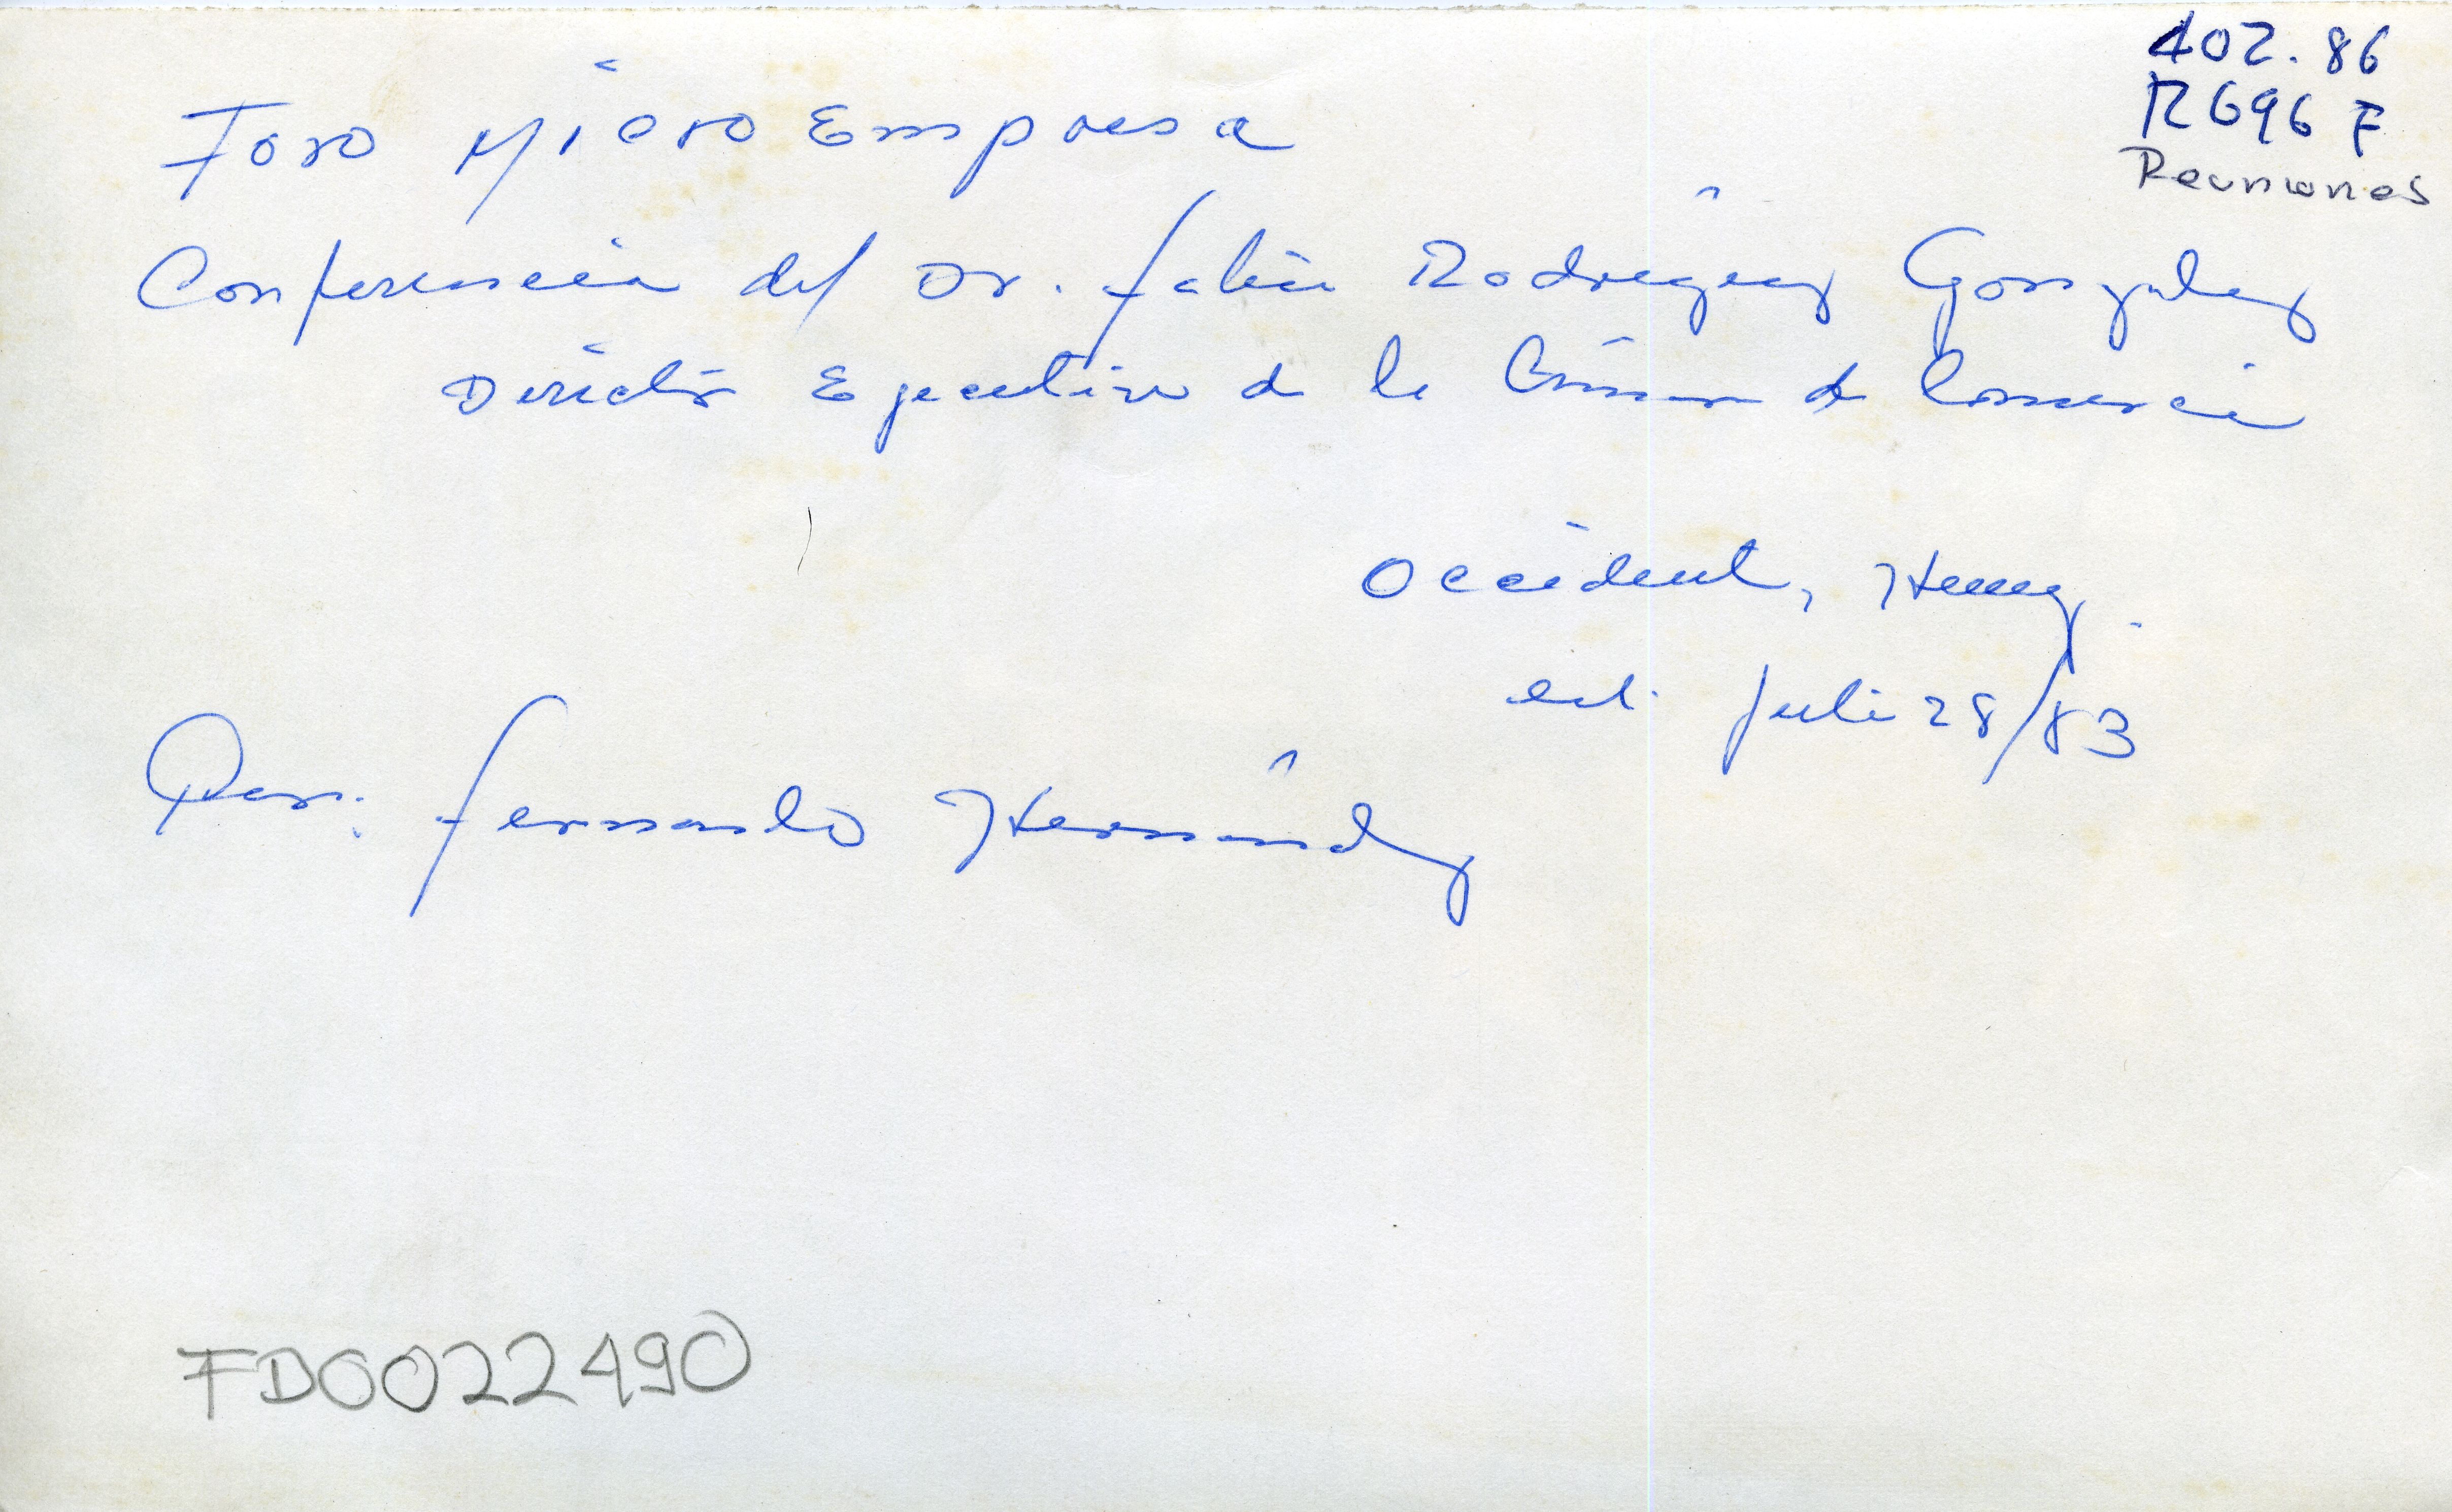 402.86
R696 F
Reuniones
Foro MicroEmpresa
Conferencia del Dr. Fabio Rodríguez González
Director Ejecutivo de la Cámara de Comercio
Occidente,
Julio 28/83
Por: Fernando Hernández
FD0022490